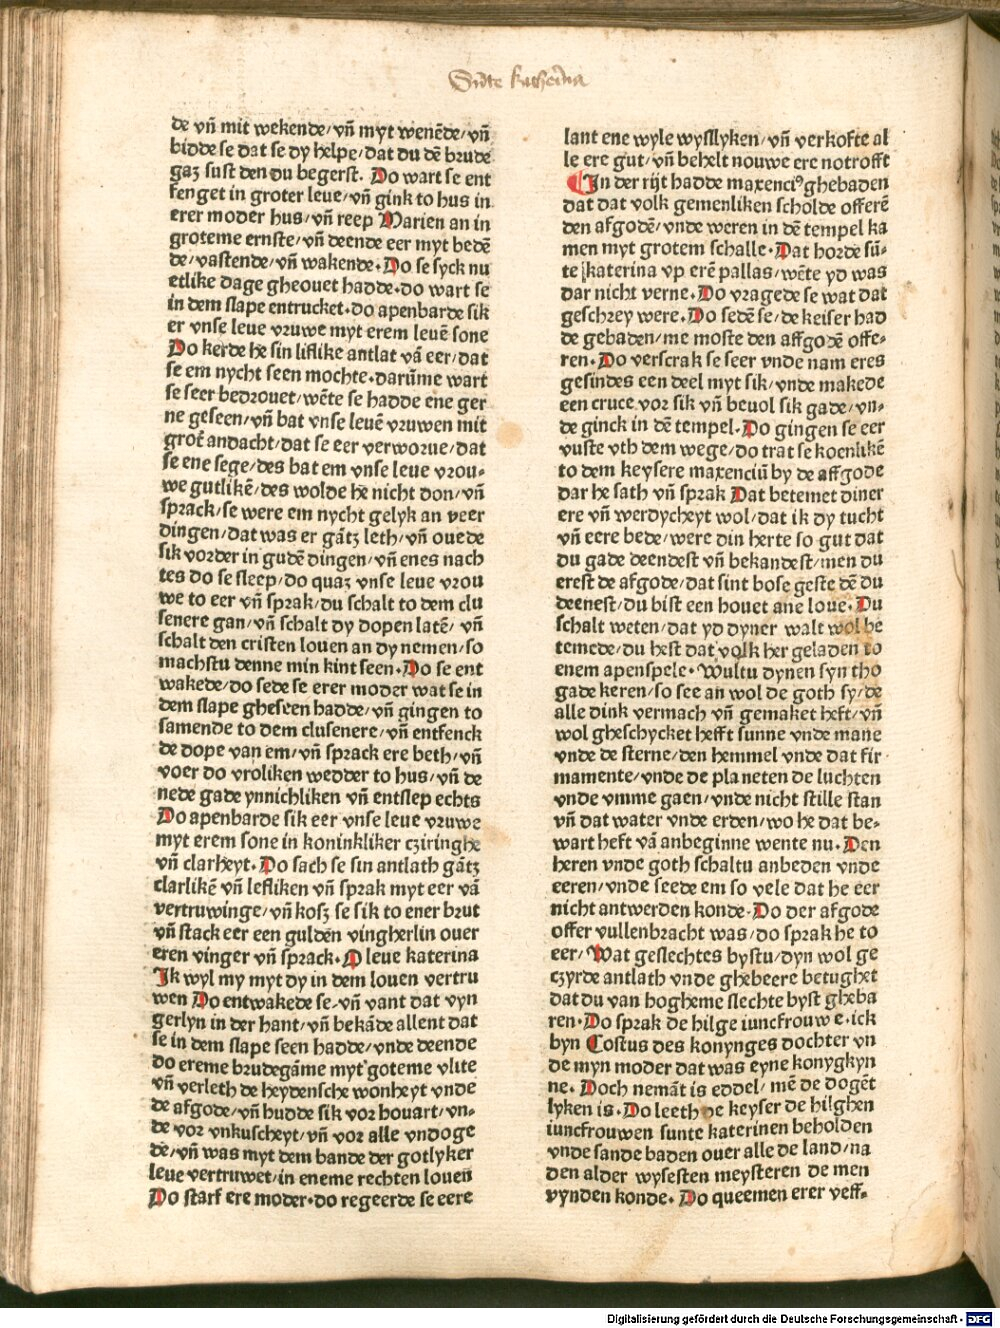 Sūte katherina
de vn̄ mit wekende/vn̄ myt wenēde/vn̄
bidde se dat se dy helpe/dat du dē brude
gaʒ sust den du begerst. Do wart se ent
fenget in groter leue/vn̄ gink to hus in
erer moder hus/vn̄ reep Marien an in
groteme ernste/vn̄ deende eer myt bedē
de/vastende/vn̄ wakende. Do se syck nu
etlike dage gheouet hadde. do wart se
in dem slape entrucket. do apenbarde sik
er vnse leue vruwe myt erem leuē sone
Do kerde he sin liflike antlat vā eer/dat
se em nycht seen mochte. darūme wart
se seer bedrouet/wēte se hadde ene ger
ne geseen/vn̄ bat vnse leuē vruwen mit
grot̄ andacht/dat se eer verworue/dat
se ene sege/des bat em vnse leue vrou-
we gutlikē/des wolde he nicht don/vn̄
sprack/se were em nycht gelyk an veer
dingen/dat was er gātʒ leth/vn̄ ouede
sik vorder in gudē dingen/vn̄ enes nach
tes do se sleep/do quaʒ vnse leue vrou
we to eer vn̄ sprak/du schalt to dem clu
senere gan/vn̄ schalt dy dopen latē/vn̄
schalt den cristen louen an dy nemen/so
machstu denne min kint seen. Do se ent
wakede/do sede se erer moder wat se in
dem slape gheseen hadde/vn̄ gingen to
samende to dem clusenere/vn̄ entfenck
de dope van em/vn̄ sprack ere beth/vn̄
voer do vroliken wedder to hus/vn̄ de
nede gade ynnichliken vn̄ entslep echts
Do apenbarde sik eer vnse leue vruwe
myt erem sone in koninkliker cziringhe
vn̄ clarheyt. Do sach se sin antlath gātʒ
clarlikē vn̄ lefliken vn̄ sprak myt eer vā
vertruwinge/vn̄ kosʒ se sik to ener brut
vn̄ stack eer een gulden vingherlin ouer
eren vinger vn̄ sprack. O leue katerina
Ik wyl my myt dy in dem louen vertru
wen Do entwakede se/vn̄ vant dat vyn
gerlyn in der hant/vn̄ bekāde allent dat
se in dem slape seen hadde/vnde deende
do ereme brudegāme myt goteme vlite
vn̄ verleth de heydensche wonheyt vnde
de afgode/vn̄ hudde sik vor houart/vn-
de vor vnkuscheyt/vn̄ vor alle vndoge
de/vn̄ was myt dem bande der gotlyker
leue vertruwet/in eneme rechten louen
Do starf ere moder. do regeerde se eere
lant ene wyle wysllyken/vn̄ verkofte al
le ere gut/vn̄ behelt nouwe ere notrofft
In der tijt hadde maxenciꝰ ghebaden
dat dat volk gemenliken scholde offerē
den afgodē/vnde weren in dē tempel ka
men myt grotem schalle. Dat horde sū-
te katerina vp erē pallas/wēte yd was
dar nicht verne. Do vragede se wat dat
geschrey were. Do sedē se/de keiser had
de gebaden/me moste den affgodē offe-
ren. Do verscrak se seer vnde nam eres
gesindes een deel myt sik/vnde makede
een cruce vor sik vn̄ beuol sik gade/vn-
de ginck in dē tempel. Do gingen se eer
vuste vth dem wege/do trat se koenlikē
to dem keysere maxenciū by de affgode
dar he sath vn̄ sprak Dat betemet diner
ere vn̄ werdycheyt wol/dat ik dy tucht
vn̄ eere bede/were din herte so gut dat
du gade deendest vn̄ bekandest/men du
erest de afgode/dat sint bose geste dē du
deenest/du bist een houet ane loue. Du
schalt weten/dat yd dyner walt wol be
temede/du hest dat volk her geladen to
enem apenspele. Wultu dynen syn tho
gade keren/so see an wol de goth sy/de
alle dink vermach vn̄ gemaket heft/vn̄
wol gheschycket hefft sunne vnde mane
vnde de sterne/den hemmel vnde dat fir
mamente/vnde de planeten de luchten
vnde vmme gaen/vnde nicht stille stan
vn̄ dat water vnde erden/wo he dat be-
wart heft vā anbeginne wente nu. Den
heren vnde goth schaltu anbeden vnde
eeren/vnde seede em so vele dat he eer
nicht antwerden konde. Do der afgode
offer vullenbracht was/do sprak he to
eer/Wat geslechtes bystu/dyn wol ge
czyrde antlath vnde ghebeere betughet
dat du van hogheme slechte byst gheba
ren. Do sprak de hilge iuncfrouwe. ick
byn Costus des konynges dochter vn
de myn moder dat was eyne konygkyn
ne. Doch nemāt is eddel/mē de dogēt
lyken is. Do leeth de keyser de hilghen
iuncfrouwen sunte katerinen beholden
vnde sande baden ouer alle de land/na
den alder wysesten meysteren de men
vynden konde. Do queemen erer veff-
Digitalisierung gefördert durch die Deutsche Forschungsgemeinschaft - DFG